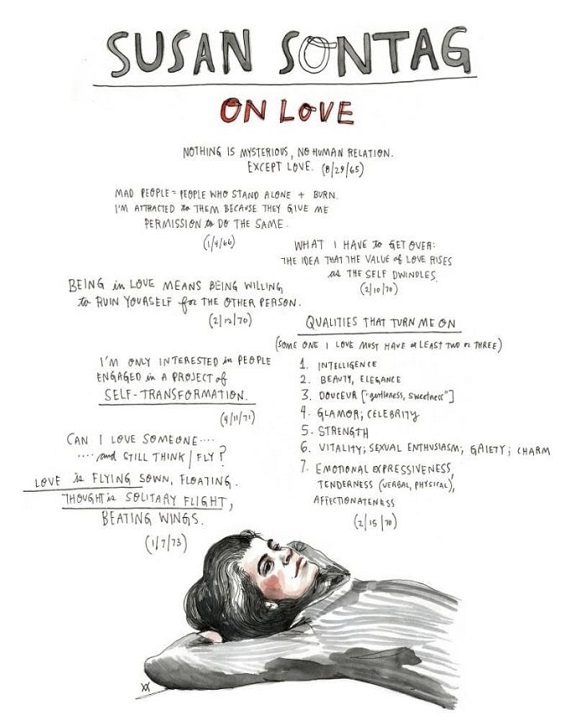 SUSAN SONTAG
ON LOVE
NOTHING IS MYSTERIOUS, NO HUMAN RELATION.
EXCEPT LOVE. (8/29/65)
MAD PEOPLE = PEOPLE WHO STAND ALONE + BURN.
I'M ATTRACTED to THEM BECAUSE THEY GIVE ME
PERMISSION to DO THE SAME.
(1/4/66)
WHAT I HAVE to GET OVER:
THE IDEA THAT THE VALUE of LOVE RISES
as THE SELF DWINDLES.
(2/10/70)
BEING in LOVE MEANS BEING WILLING
to RUIN YOURSELF for THE OTHER PERSON.
(2/12/70)
QUALITIES THAT TURN ME ON
(SOME ONE I LOVE MUST HAVE at LEAST TWO or THREE)
1. INTELLIGENCE
2. BEAUTY, ELEGANCE
3. DOUCEUR ["gentleness, sweetness"]
4. GLAMOR; CELEBRITY
5. STRENGTH
6. VITALITY; SEXUAL ENTHUSIASM; GAIETY; CHARM
7. EMOTIONAL EXPRESSIVENESS,
TENDERNESS (VERBAL, PHYSICAL),
AFFECTIONATENESS
(2/15/70)
I'M ONLY INTERESTED in PEOPLE
ENGAGED in A PROJECT of
SELF-TRANSFORMATION.
(9/11/71)
CAN I LOVE SOMEONE....
.... and STILL THINK/FLY?
LOVE is FLYING SOWN, FLOATING.
THOUGHT is SOLITARY FLIGHT,
BEATING WINGS.
(1/7/73)